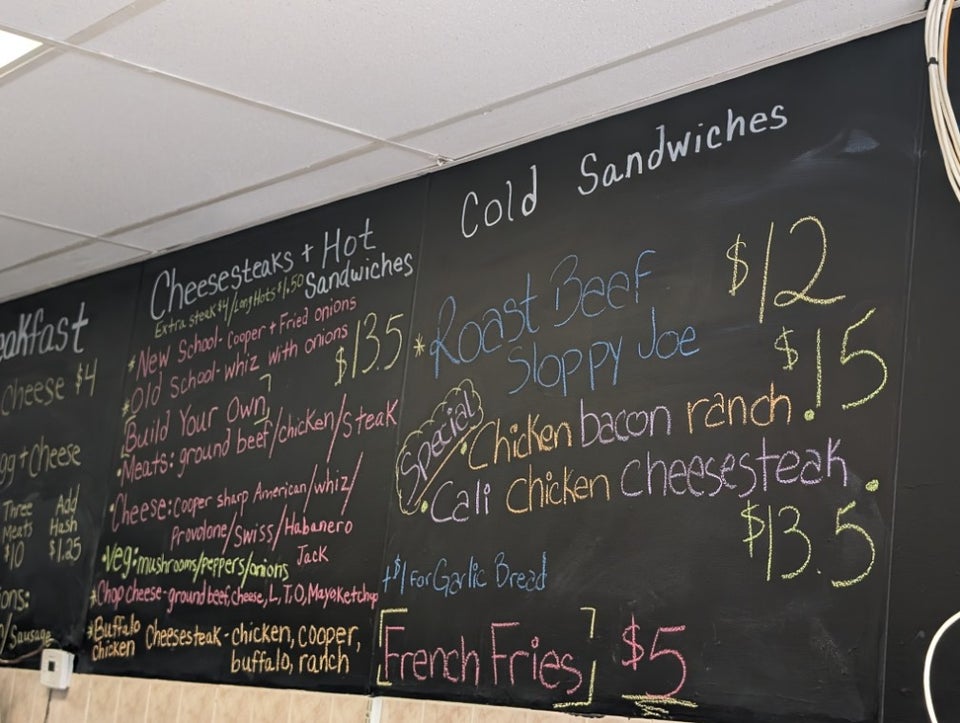 eakfast
Cheese $4
gg + Cheese
Three Meats $10
Add Hash $1.25
ons:
/Sausage
Cheesesteaks + Hot
Sandwiches
Extra steak $4/Long Hots $1.50
*New School- Cooper + Fried onions
*Old School- whiz with onions
$13.5
[Build Your Own]
•Meats: ground beef/chicken/steak
•Cheese: cooper sharp American/whiz/
Provolone/Swiss/Habanero
Jack
•Veg: mushrooms/peppers/onions
*Chop cheese- ground beef, cheese, L, T, O, Mayo Ketchup
*Buffalo chicken Cheesesteak - chicken, cooper,
buffalo, ranch
Cold Sandwiches
*Roast Beef $12
Sloppy Joe $15
Special
•Chicken bacon ranch •
•Cali chicken cheesesteak •
$13.5
+$1 for Garlic Bread
[French Fries] $5